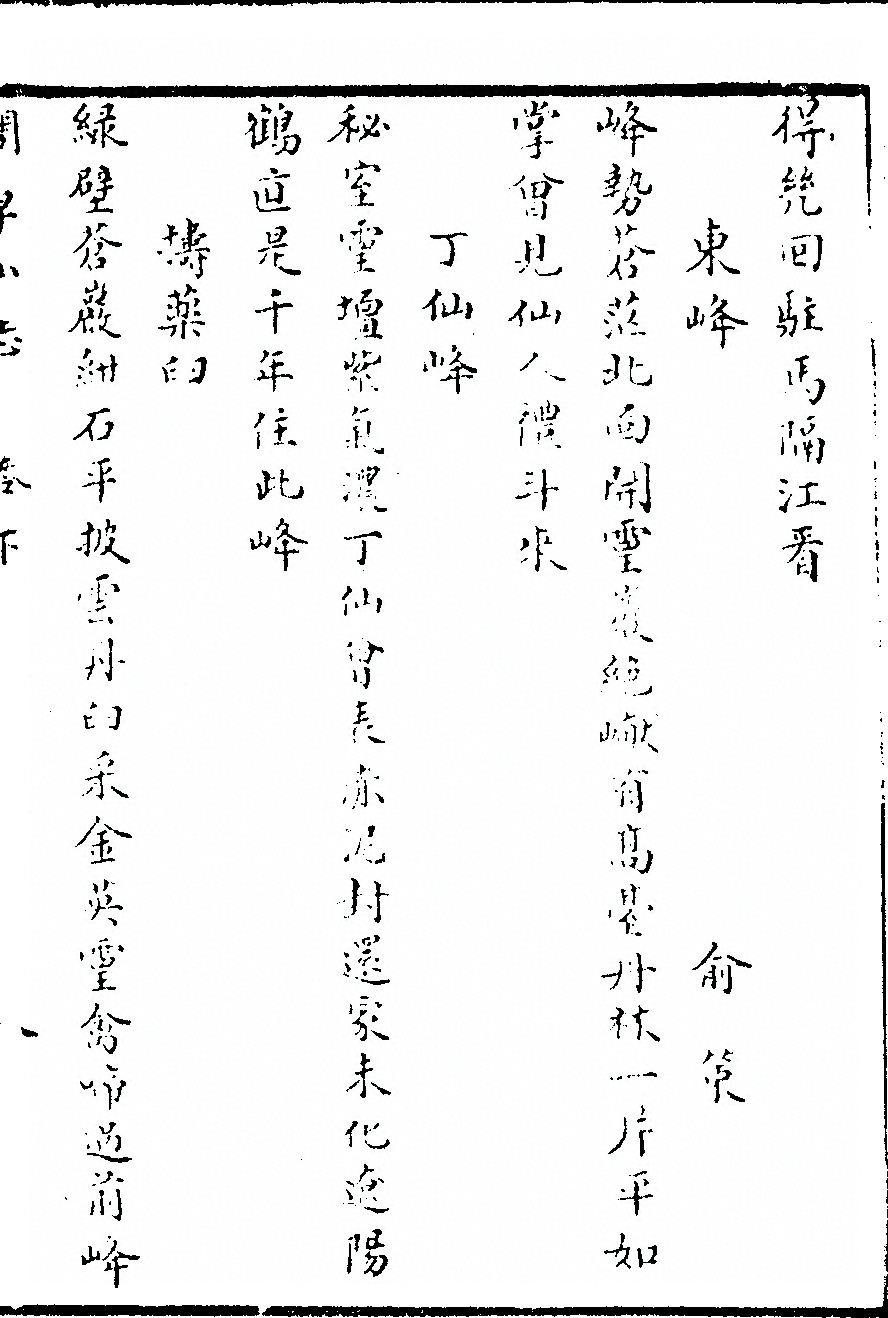 得幾回駐馬隔江看
東峰　俞策
峰勢蒼茫北面開靈巖絶巘有高臺丹林一片平如
掌曾見仙人禮斗來
丁仙峰
秘室靈壇紫氣濃丁仙曾表赤泥封還家未化遼陽
鶴直是千年住此峰
擣藥臼
緑壁蒼巖紺石平披雲丹臼采金英靈禽啼過前峰